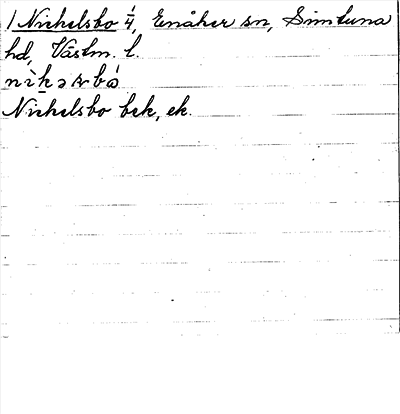 1 Nickelsbo 4, Enåker sn, Simtuna
hd, Västm. l.
Nickelsbo bek, ek.